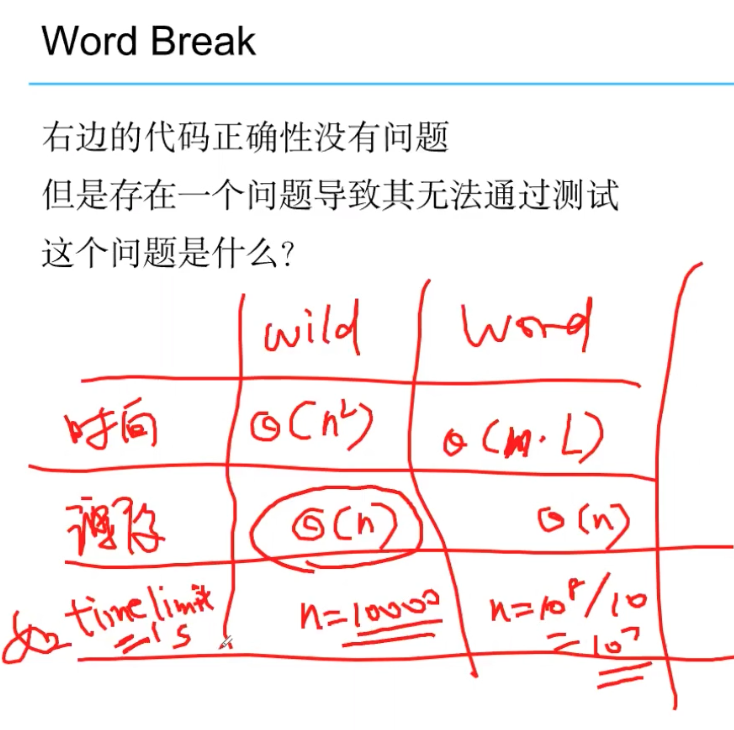 Word Break
右边的代码正确性没有问题
但是存在一个问题导致其无法通过测试
这个问题是什么?
wild word
时间 O(n²) O(n·L)
深度 O(n) O(n)
timelimit n=10000 n=10⁸/10
=1s =10⁷